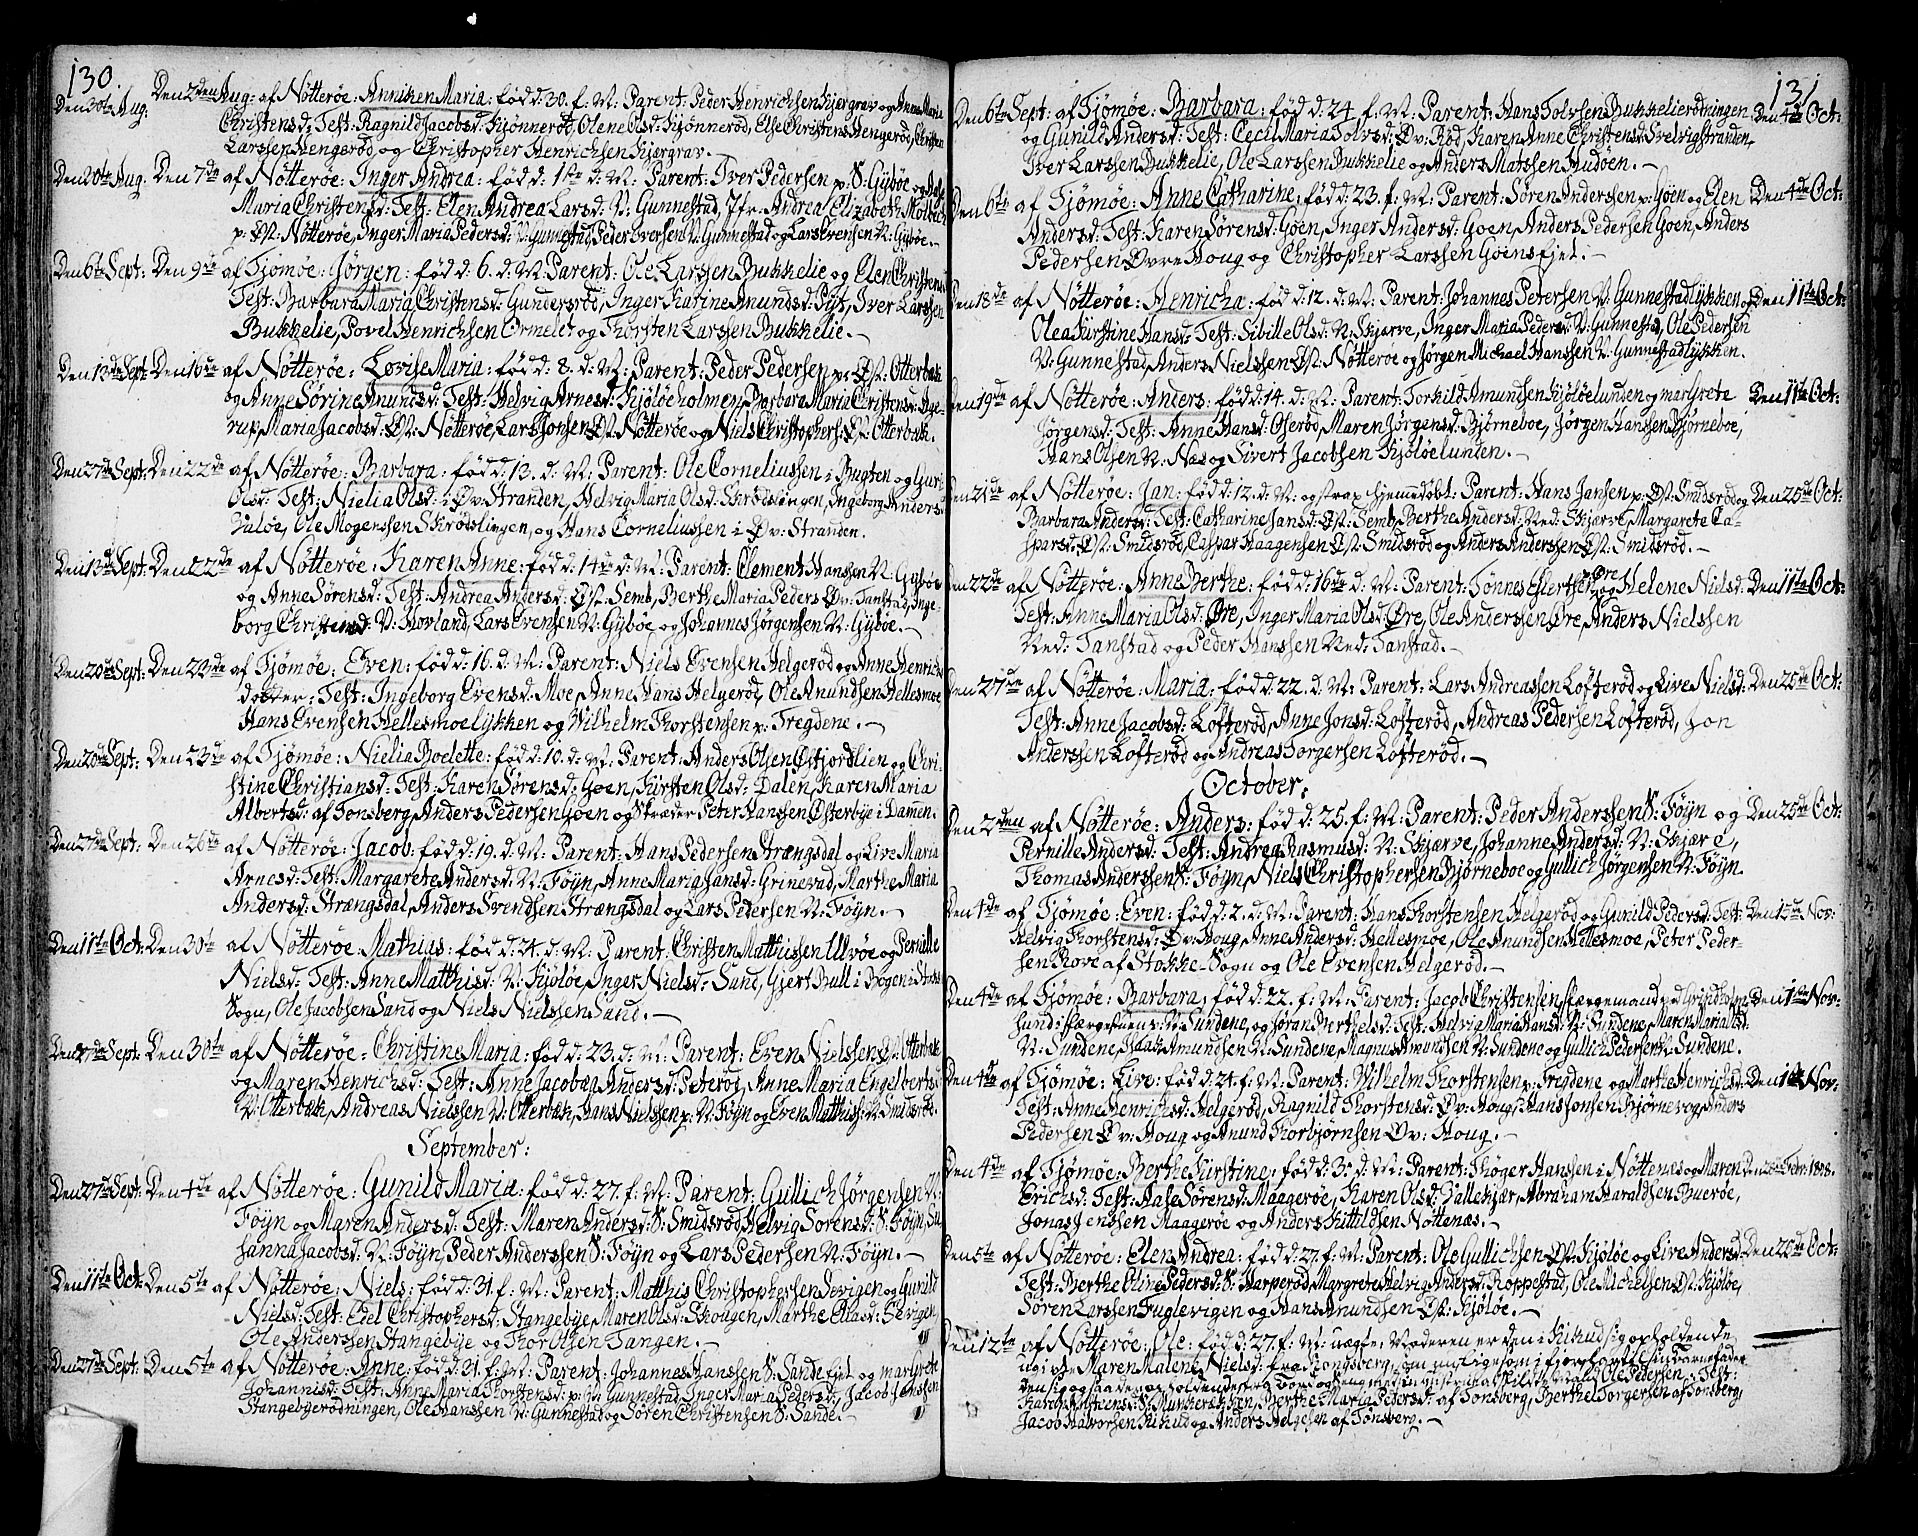 130.
Den 30te Aug: Den 2den Aug: af Nøtterøe: Anniken Maria: född: 30. f. M: Parent: Peder Henrichsen Kjærgrav og Anne Maria
Christensd: Test: Ragnild Jacobsd: Kjønnerød, Olene Olsd: Kjønnerød, Else Christens Hengerød, Christen
Larssen Hengerød og Christopher Henrichsen Kjærgrav. —
Den 30te Aug: Den 7de af Nøtterøe: Inger Andrea: född: 1ste d: M: Parent: Iver Pedersen p: S: Gybøe og
Maria Christensd: Test: Elen Andrea Larsd: N: Gunnestad, Jfr: Andrea Elizabeth Moldach
p: Øst: Nøtterøe, Inger Maria Pedersd: N: Gunnestad, Peder Iversen N: Gunnestad og Lars Evensen N: Gybøe. —
Den 6te Sept: Den 9de af Tjømøe: Jørgen: född: 6. d. M: Parent: Ole Larssen Bukkelie og Elen Christensd:
Test: Barbara Maria Christensd: Gundersrød, Inger Karine Anundsd: Pytz, Iver Larssen
Bukkelie, Povel Henrichsen Ormelet og Thorsten Larssen Bukkelie. —
Den 13de Sept: Den 16de af Nøtterøe: Lovise Maria: född: 8. d. M: Parent: Peder Pedersen p: Øst: Otterbæk
og Anne Sørine Anundsd: Test: Helvig Arnesd: Kjøløeholmen, Barbara Maria Christensd: Age-
rup, Maria Jacobsd: Øst: Nøtterøe, Lars Jonsen Øst: Nøtterøe og Niels Christophers: Øst: Otterbæk.
Den 27de Sept: Den 22de af Nøtterøe: Barbara: född: 13. d. M: Parent: Ole Corneliussen i Bugten og Guri
Olsd: Test: Nielia Olsd: i Øv: Stranden, Helvig Maria Olsd: Skrødslingen, Ingeborg Andersd:
Valøe, Ole Mogenssen Skrødslingen, og Hans Corneliussen i Øv: Stranden.
Den 13de Sept: Den 22de af Nøtterøe: Karen Anne: född: 14de d: M: Parent: Clement Hanssen N: Gybøe
og Anne Sørensd: Test: Andrea Andersd: Øst: Semb, Berthe Maria Peders Øv: Tanstad, Inge-
borg Christensd: N: Hovland, Lars Evensen N: Gybøe og Johannes Jørgensen N: Gybøe. —
Den 20de Sept: Den 23de af Tjømøe: Even: född: 16. d. M: Parent: Niels Evensen Helgerød og Anne Henrichs
dotter: Test: Ingeborg Evensd: Moe, Anne Hans Helgerød, Ole Anundsen Hellesmoe
Hans Evensen Hellesmoeløkken og Wilhelm Thorstensen p: Tregdene. —
Den 20de Sept: Den 23de af Tjømøe: Nielia Boelette: född: 10. d: M: Parent: Anders Olsen Østjordlien og Chri-
stine Christiansd: Test: Karen Sørensd: Goen, Kirsten Olsd: Dalen, Karen Maria
Albertsd: af Tonsberg, Anders Pedersen Goen og Skræder Peter Hanssen Østerbye i Dammen.
Den 27de Sept: Den 26de af Nøtterøe: Jacob: född: 19. d. M: Parent: Hans Pedersen Strængsdal og Live Maria
Arnesd: Test: Margarete Andersd: N: Føyn, Anne Maria Jansd: Grinevad, Marthe Maria
Andersd: Strængsdal, Anders Svendsen Strængsdal og Lars Pedersen N: Føyn. —
Den 11te Oct: Den 30te af Nøtterøe Mathias: född: 24. d. M: Parent: Christen Matthissen Ulvøe og Pernille
Nielsd: Test: Anne Matthisd: N: Kjøløe, Inger Nielsd: Sand, Gjert Bull i Bogen i
Sogn, Ole Jacobsen Sand og Niels Nielssen Sand. —
Den 27de Sept: Den 30te af Nøtterøe: Christine Maria: född: 23. d. M: Parent: Even Nielssen N: Otterbæk
og Maren Henrichsd: Test: Anne Jacobæa Andersd: Peterød, Anne Maria Engelbertsd:
N: Otterbæk, Andreas Nielssen N: Otterbæk, Hans Nielssen p: N: Føyn og Even Matthiss: N: Smidsrød.
September:
Den 27de Sept: Den 4de af Nøtterøe: Gunild Maria: född: 27. f. M: Parent: Gullich Jørgensen N:
Føyn og Maren Andersd: Test: Maren Andersd: S: Smidsrød, Helvig Sorensd: S: Føyn, Su-
sanna Jacobsd: N: Føyn, Peder Anderssen S: Føyn og Lars Pedersen N: Føyn. —
Den 11te Oct: Den 5te af Nøtterøe: Niels: född: 31. f. M: Parent: Mathis Christophersen Sevigen og Gunild
Nielsd: Test: Edel Christophersd: Stangebye, Maren Olsd: Skougen, Marthe Eliasd: Sevigen,
Ole Anderssen Stangebye og Thor Olsen Tangen. —
Den 27de Sept: Den 5te af Nøtterøe: Anne: född: 31. f. M: Parent: Johannes Hanssen S: Sande fjet og margrete
Johannisd: Test: Anne Maria Thorstensd: p: N: Gunnestad, Inger Maria Pedersd: Jacob Jonssen
Stangebyerødningen, Ole Hanssen N: Gunnestad og Søren Christensen S: Sande. —
131
Den 6te Sept: af Tjømøe: Barbara: född: 24. f. M: Parent: Hans Tolvsen Bukkelierødningen Den 4de Oct:
og Gunild Andersd: Test: Cecil Maria Tolvsd: Øv: Rød, Karen Anne Christensd: Svelvigstranden,
Iver Larssen Bukkelie, Ole Larssen Bukkelie og Anders Matssen Hudøen. —
Den 6te af Tjømøe: Anne Catharine: född: 23. f. M: Parent: Søren Anderssen p: Goen og Elen Den 4de Oct:
Andersd: Test: Karen Sørensd: Goen, Inger Andersd: Goen, Anders Pedersen Goen, Anders
Pedersen Øvre Houg og Christopher Larssen Goensfjet. —
Den 18de af Nøtterøe: Henricha: född: 12. d. M: Parent: Johannes Petersen N: Gunnestadløkken og Den 11te Oct:
Olea Kirstine Hansd: Test: Sibille Olsd: N: Skjærve, Inger Maria Pedersd: N: Gunnestad, Ole Pedersen
N: Gunnestad, Anders Nielssen Øst: Nøtterøe og Jørgen Michael Hanssen N: Gunnestadløkken.
Den 19de af Nøtterøe: Anders: född: 14. d: M: Parent: Torkild Amundsen Kjøløelunden og margrete Den 11te Oct:
Jørgensd: Test: Anne Hansd: Oserød, Maren Jørgensd: Bjørneboe, Jørgen Hanssen Bjørneboe,
Hans Olsen N: Næs og Sivert Jacobsen Kjøløelunden. —
Den 21de af Nøtterøe: Jan: född: 12. d. M: og strax hjemmedøbt: Parent: Hans Jansen p: Øst: Smidsrød og Den 25de Oct:
Barbara Andersd: Test: Catharine Jansd: Øst: Semb, Berthe Andersd: Ned: Skjærve, Margarete Ca-
sparsd: Øst: Smidsrød, Caspar Haagensen Øst: Smidsrød og Anders Anderssen Øst: Smidsrød. —
Den 22de af Nøtterøe: Anne Berthe: född: 16de d. M: Parent: Tønnes Eilertsen Øre og Helene Nielsd: Den 11te Oct:
Test: Anne Maria Olsd: Øre, Inger Maria Olsd: Øre, Ole Anderssen Øre, Anders Nielssen
Ned: Tanstad og Peder Hanssen Ned: Tanstad. —
Den 27de af Nøtterøe: Maria: född: 22. d. M: Parent: Lars Andreassen Lofterød og Live Nielsd: Den 25de Oct:
Test: Anne Jacobsd: Lofterød, Anne Jonsd: Lofterød, Andreas Pedersen Lofterød, Jon
Anderssen Lofterød og Andreas Torgersen Lofterød. —
October:
Den 2den af Nøtterøe: Anders: född: 25. f. M: Parent: Peder Anderssen S: Føyn og Den 25de Oct:
Pernille Andersd: Test: Andrea Rasmusd: N: Skjærve, Johanne Andersd: N: Skjærve,
Thomas Anderssen S: Føyn, Niels Christophersen Bjørneboe og Gullich Jørgensen N: Føyn.
Den 4de af Tjømøe: Even: född: 2. d: M: Parent: Hans Thorstensen Helgerød og Gunild Pedersd: Test: Den 15de Nov:
Helvig Thorstensd: Øv: Houg, Anne Andersd: Hellesmoe, Ole Anundsen Hellesmoe, Peter Peder-
sen Rove af Stokke-Sogn og Ole Evensen Helgerød. —
Den 4de af Tjømøe: Barbara: född: 22. f. M: Parent: Jacob Christensen færgemand ved Grindholm- Den 1ste Nov:
sund i færgestuen v: N: Sundene, og Jøran Berthelsd: Test: Helvig Maria Hansd: N: Sundene, Maren Maria Olsd:
N: Sundene, Isaak Amundsen N: Sundene, Magnus Amundsen N: Sundene og Gullich Pedersen N: Sundene.
Den 4de af Tjømøe: Live: född: 24. f. M: Parent: Wilhelm Thorstensen p: Tregdene og Marthe Henrichsd: Den 1ste Nov:
Test: Anne Henrichsd: Helgerød, Ragnild Thorstensd: Øv: Houg, Hans Jonsen Bjørnevog, Anders
Pedersen Øv: Houg og Anund Thorbjørnsen Øv: Houg. —
Den 4de af Tjømøe: Berthe Kirstine: född: 3. d. M: Parent: Thøger Hanssen i Nøttenæs og Maren Den Febr: 1808.
Erichsd: Test: Aase Sørensd: Maagerøe, Karen Olsd: Hallekjær, Abraham Haraldsen Buerøe,
Jonas Jenssen Maagerøe og Anders Kittildsen Nøttenæs. —
Den 5te af Nøtterøe: Elen Andrea: född: 27. f. M: Parent: Ole Gullichsen Øst: Kjøløe og Live Andersd: Den 22de Oct:
Test: Berthe Oline Pedersd: S: Harperød, Margrete Helvig Andersd: Roppestad, Ole Michelsen Øst: Kjøløe,
Søren Larssen Fuglevigen og Hans Anundsen Øst: Kjøløe. —
Den 12te af Nøtterøe: Ole: född: 27. f. M: uægte, Moderen er den i Kihud sig opholdende
Maren Malene Nielsd: fra Kongsberg, som
Ole Pedersen. Test:
S: Munkerækken, Berthe Maria Pedersd: af Tonsberg, Berthel Torgersen af Tonsberg,
Jacob Halvorsen Kihud og Anders Helgesen af Tønsberg. —